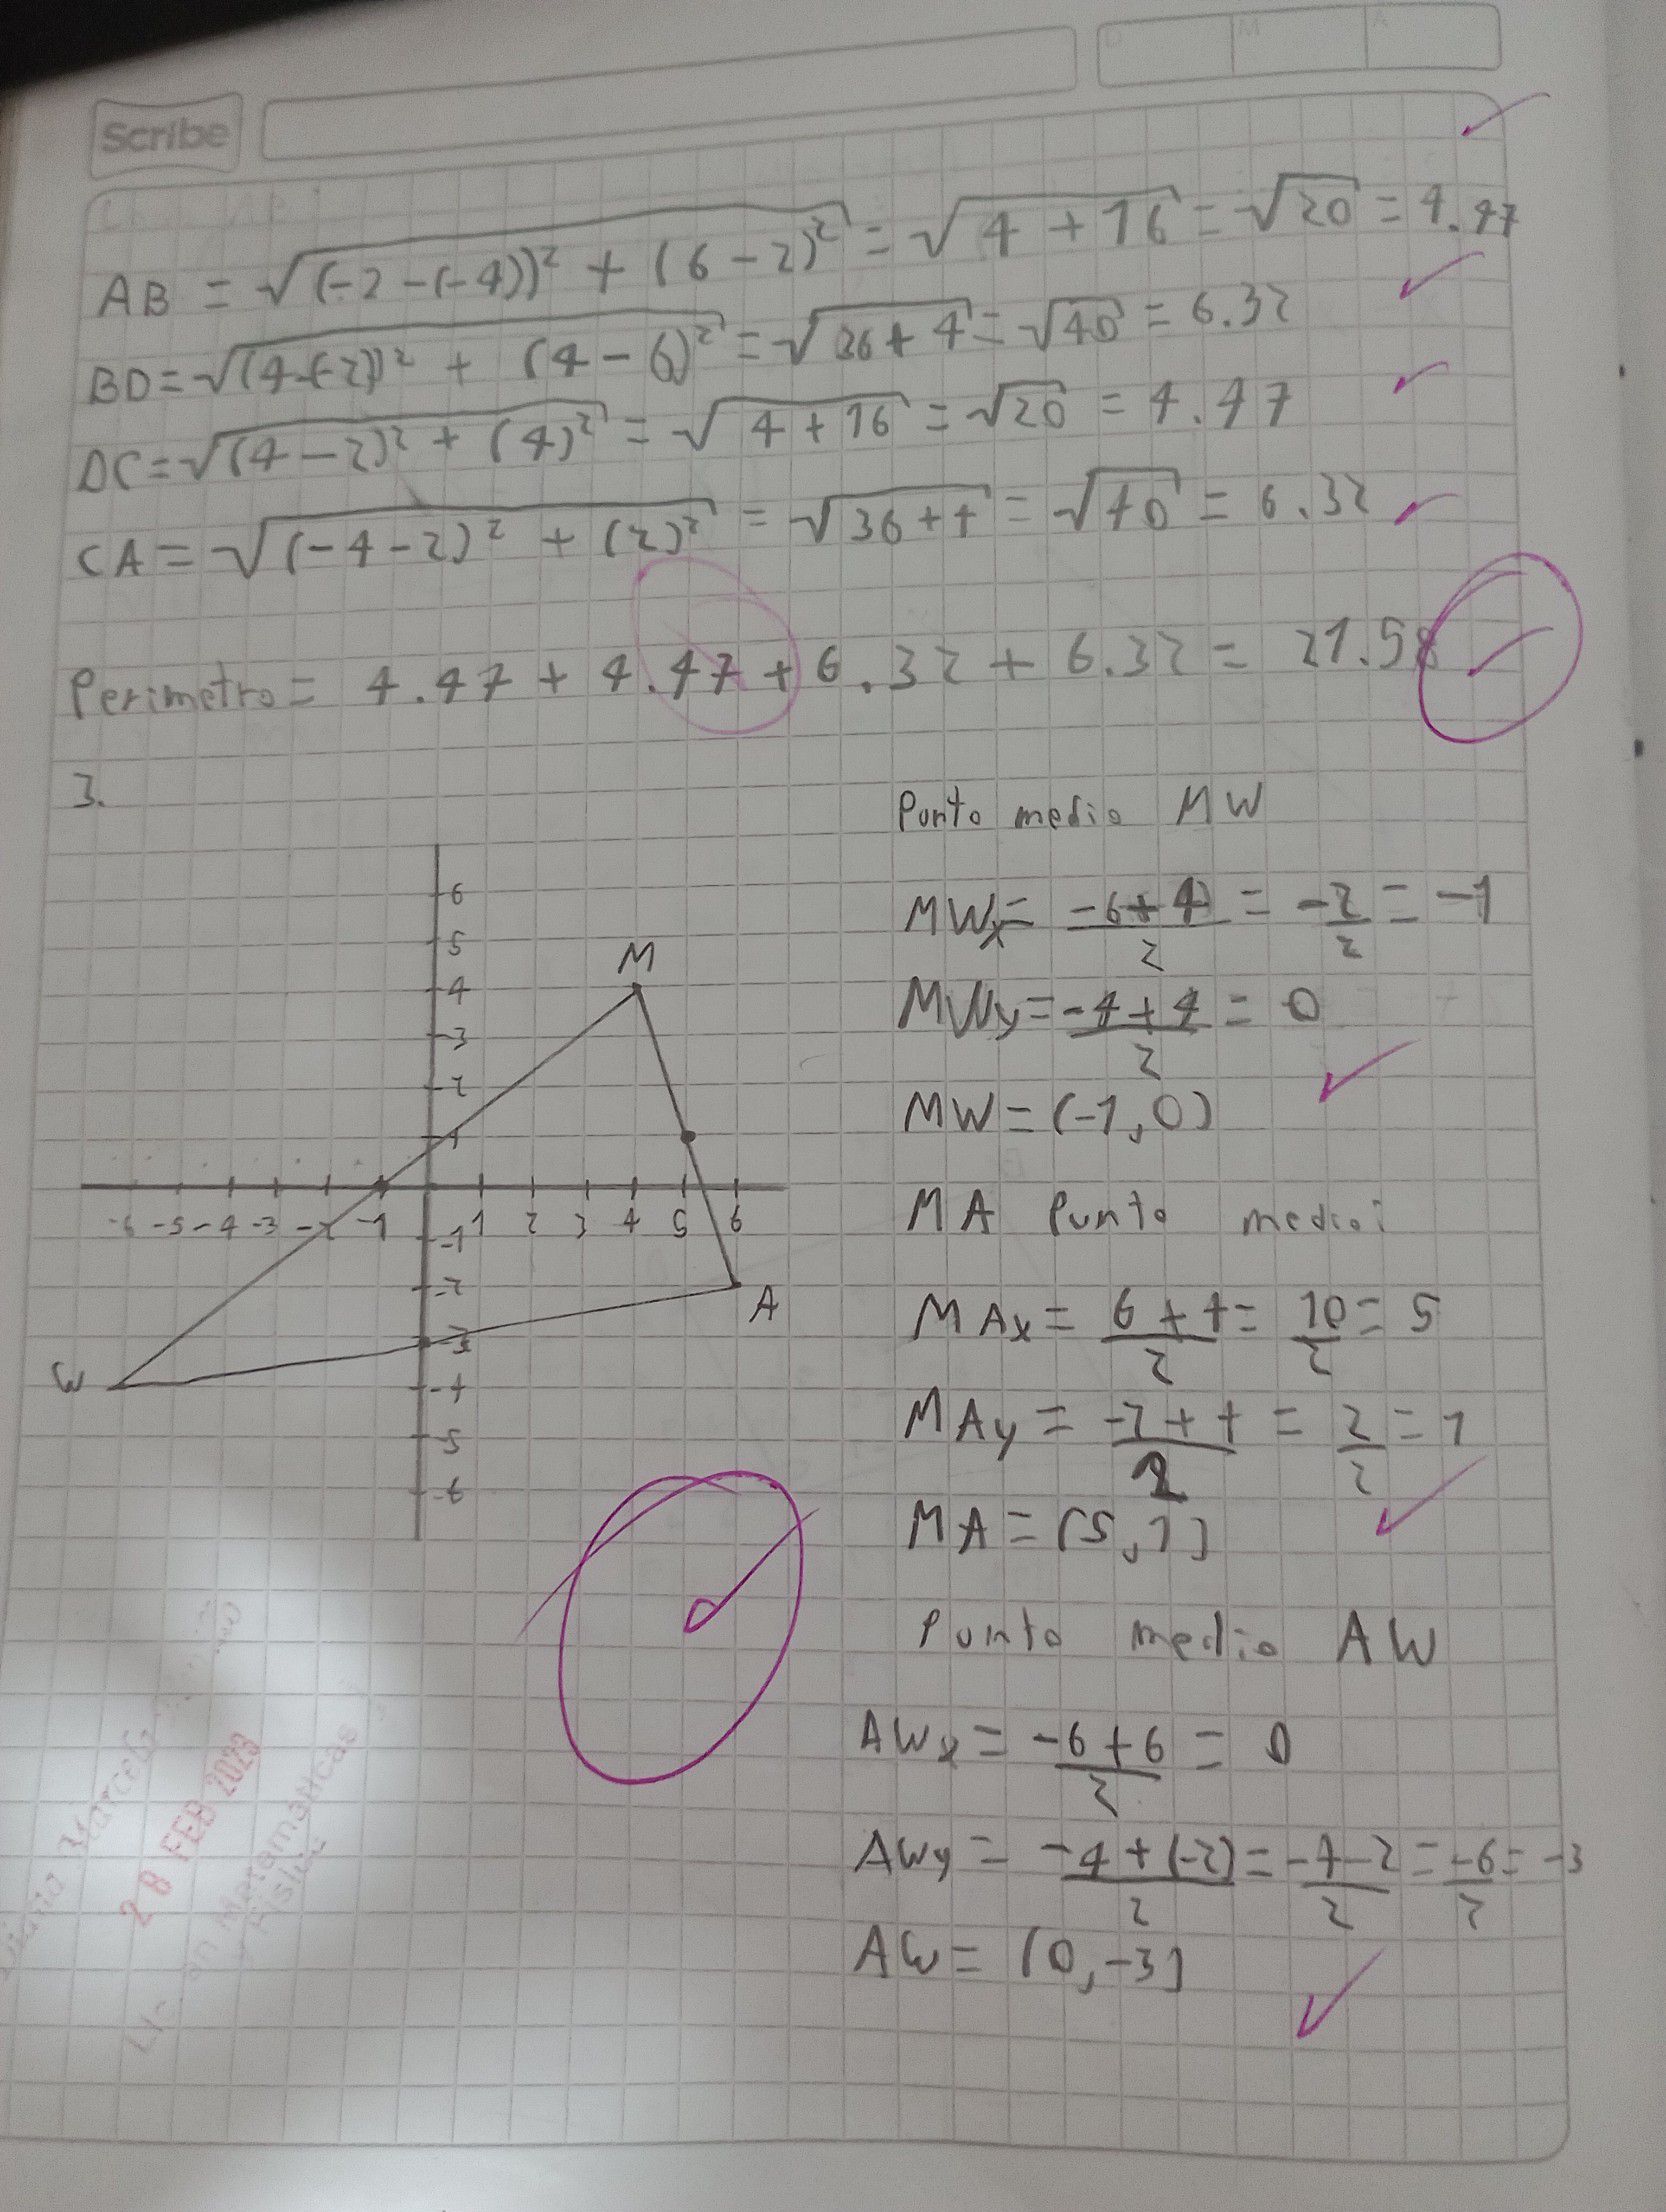 Scribe
D M A
AB = √(-2-(-4))² + (6-2)² = √4+16 = √20 = 4.47
BD = √(4-(-2))² + (4-6)² = √36+4 = √40 = 6.32
DC = √(4-2)² + (4)² = √4+16 = √20 = 4.47
CA = √(-4-2)² + (2)² = √36+4 = √40 = 6.32
Perimetro = 4.47 + 4.47 + 6.32 + 6.32 = 21.58
3.
6
5
M
4
3
2
1
-6 -5 -4 -3 -2 -1 1 2 3 4 5 6
-1
-2
A
-3
W
-4
-5
-6
Punto medio MW
MWx = -6+4/2 = -2/2 = -1
MWy = -4+4/2 = 0
MW = (-1,0)
MA Punto medio:
MAx = 6+4/2 = 10/2 = 5
MAy = -2+4/2 = 2/2 = 1
MA = (5,1)
Punto medio AW
AWx = -6+6/2 = 0
AWy = -4+(-2)/2 = -4-2/2 = -6/2 = -3
AW = (0,-3)
28 FEB 2023
en Matematicas